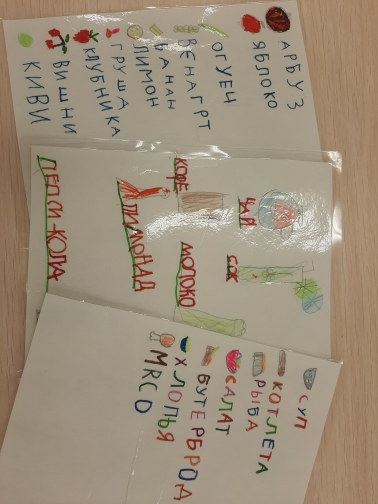 АРБУЗ
ЯБЛОКО
ОГУЕЦ
ВЕНАГРТ
БАНАН
ЛИМОН
ГРУША
КЛУБНИКА
ВИШНИ
КИВИ
ЧАЙ
СОК
КОФЕ
МОЛОКО
ЛИМОНАД
ПЕПСИ-КОЛА
СУП
КОТЛЕТА
РЫБА
САЛАТ
БУТЕРБРОД
ХЛОПЬЯ
МЯСО